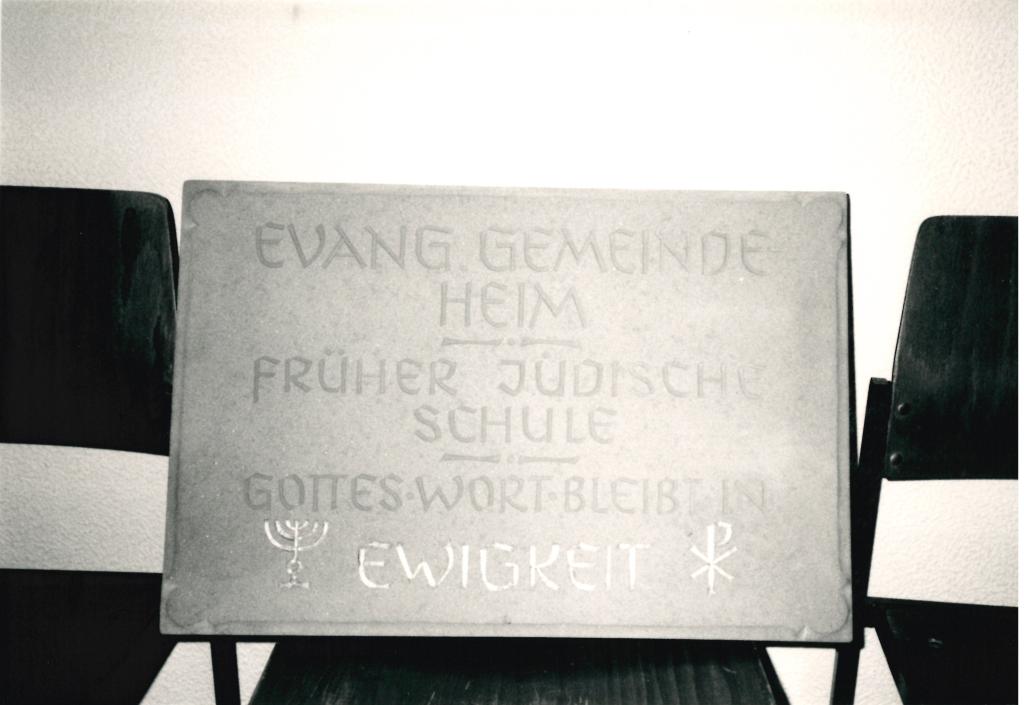 EVANG. GEMEINDE-
HEIM
FRÜHER JÜDISCHE
SCHULE
GOTTES·WORT·BLEIBT·IN
EWIGKEIT